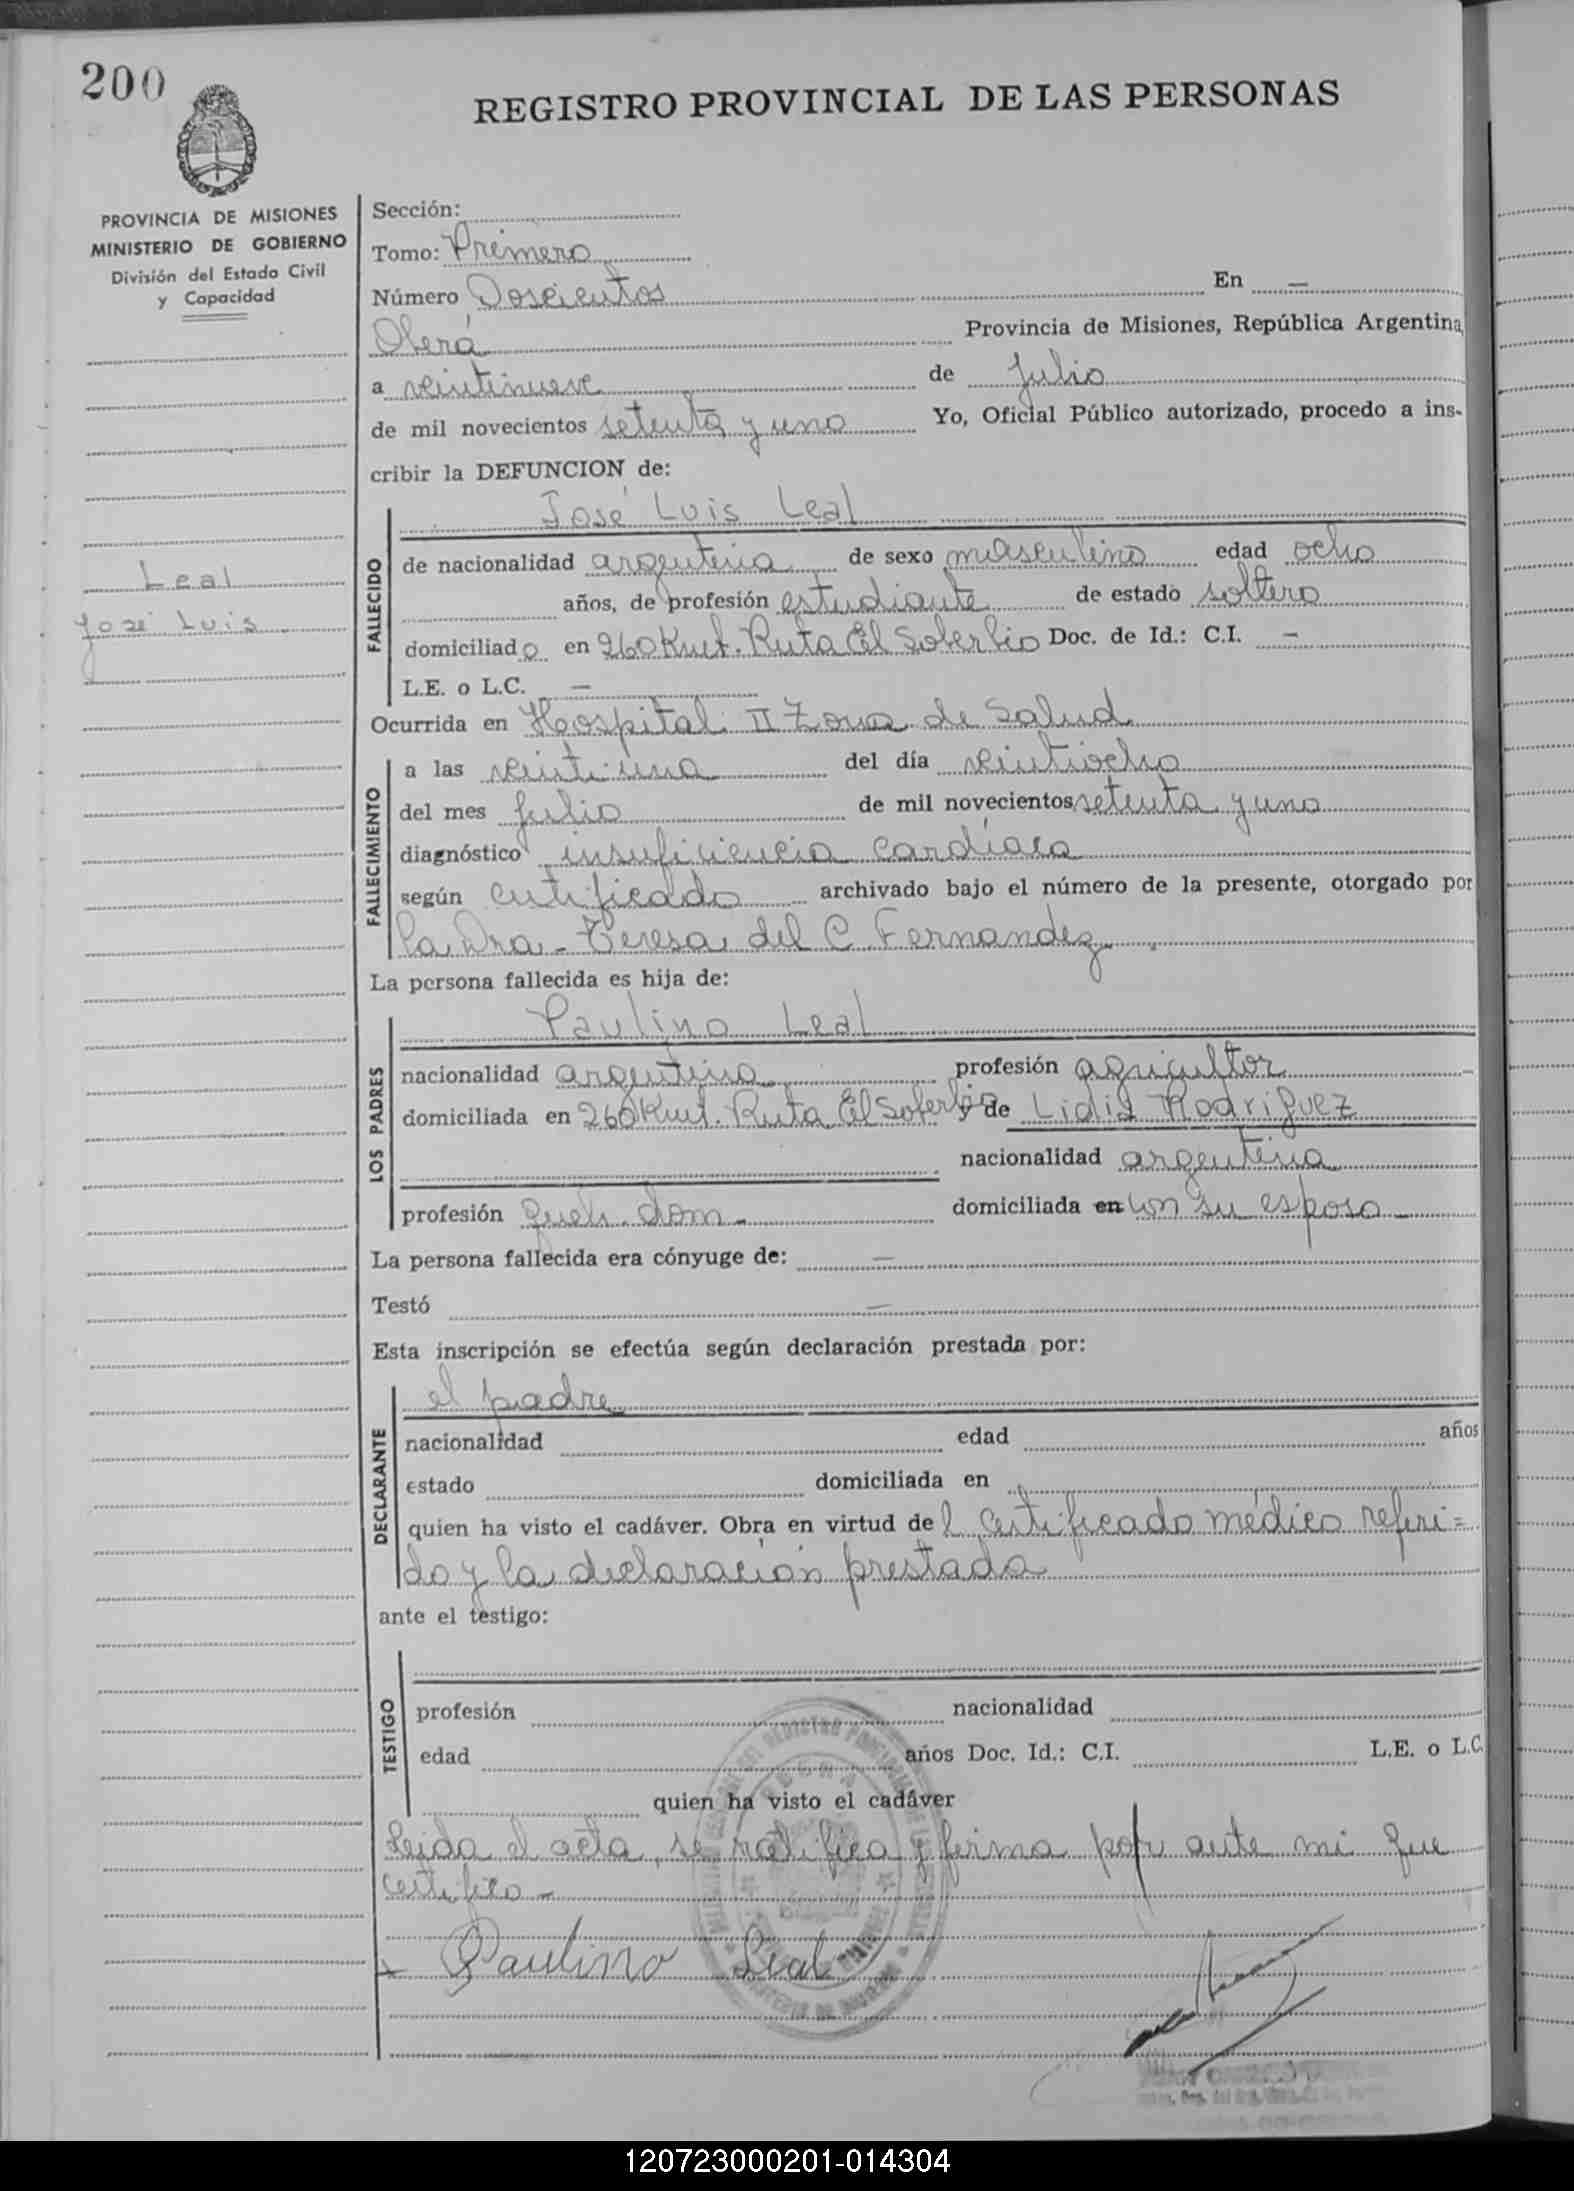 200
REGISTRO PROVINCIAL DE LAS PERSONAS
PROVINCIA DE MISIONES
MINISTERIO DE GOBIERNO
División del Estado Civil
y Capacidad
Leal
José Luis
Sección:
Tomo: Primero
Número Doscientos En —
Oberá Provincia de Misiones, República Argentina,
a veintinueve de Julio
de mil novecientos setenta y uno Yo, Oficial Público autorizado, procedo a ins-
cribir la DEFUNCION de:
FALLECIDO
José Luis Leal
de nacionalidad argentina de sexo masculino edad ocho
años, de profesión estudiante de estado soltero
domiciliado en 260 Kmt. Ruta El Soberbio Doc. de Id.: C.I. —
L.E. o L.C. —
Ocurrida en Hospital II Zona de Salud
FALLECIMIENTO
a las veintiuna del día veintiocho
del mes Julio de mil novecientos setenta y uno
diagnóstico insuficiencia cardíaca
según certificado archivado bajo el número de la presente, otorgado por
la Dra. Teresa del C. Fernandez
La persona fallecida es hija de:
LOS PADRES
Paulino Leal
nacionalidad argentina profesión agricultor
domiciliada en 260 Kmt. Ruta El Soberbio y de Lidia Rodriguez
nacionalidad argentina
profesión queh. dom. domiciliada en con su esposo
La persona fallecida era cónyuge de: —
Testó —
Esta inscripción se efectúa según declaración prestada por:
DECLARANTE
el padre
nacionalidad edad años
estado domiciliada en
quien ha visto el cadáver. Obra en virtud del certificado médico referi=
do y la declaración prestada
ante el testigo:
TESTIGO
profesión nacionalidad
edad años Doc. Id.: C.I. L.E. o L.C.
quien ha visto el cadáver
Leida el acta, se ratifica y firma por ante mi que
certifico -
Paulino Leal
120723000201-014304